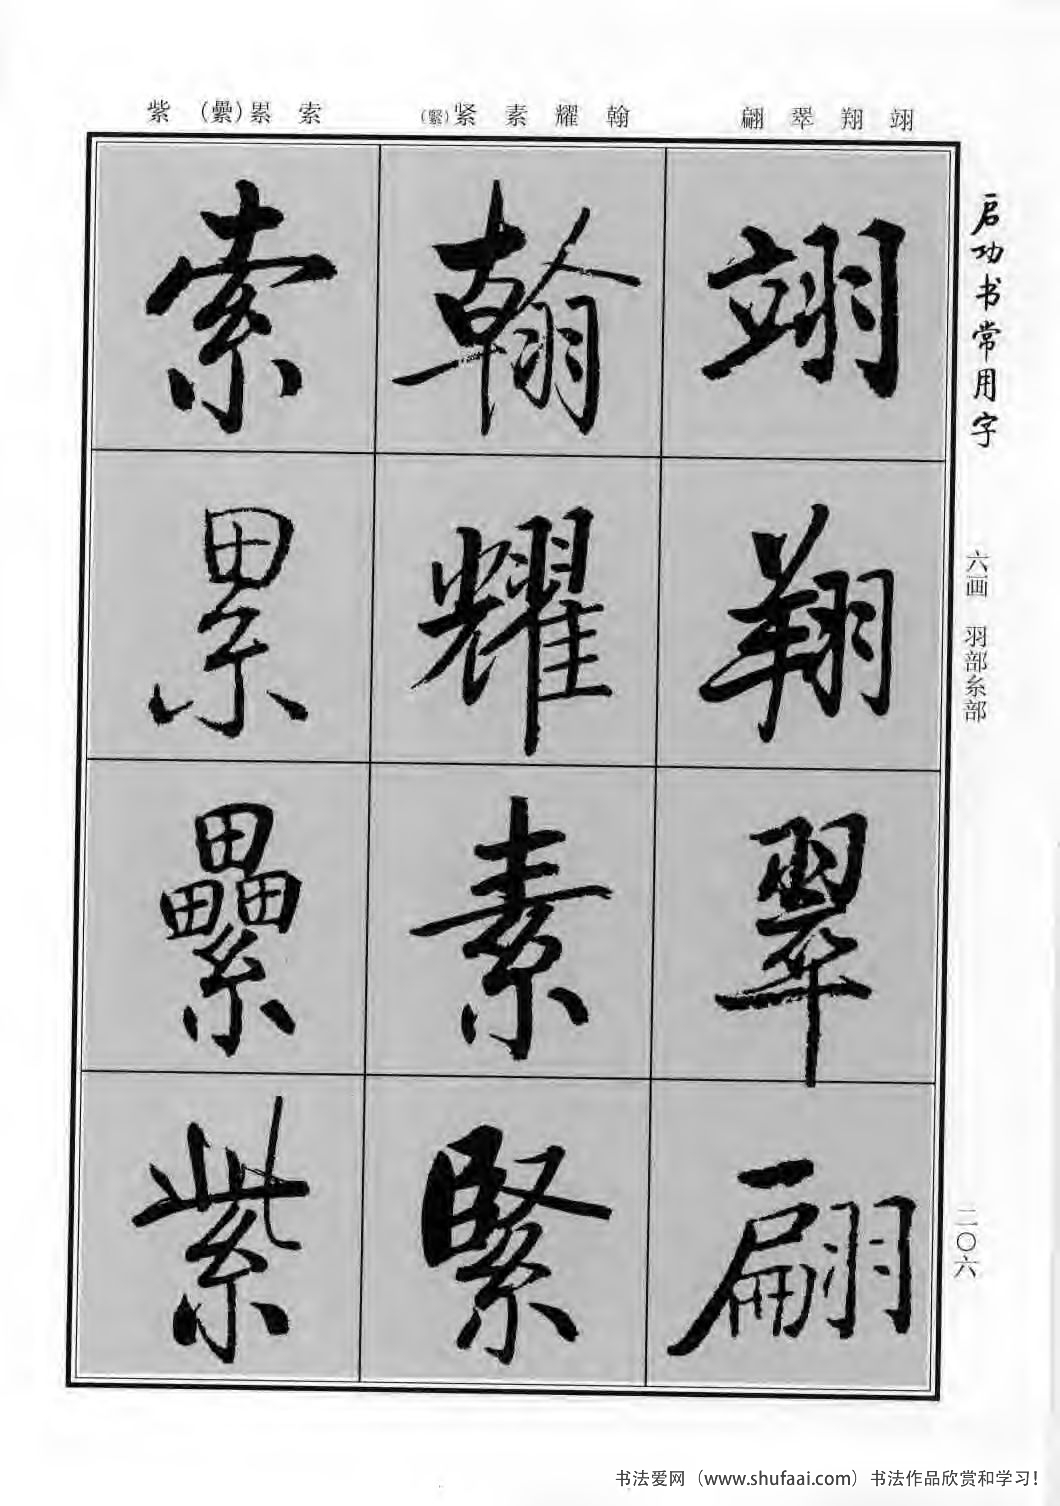 翊 翔 翠 翩
翰 耀 素 紧(緊)
索 累(纍) 紫
启功书常用字
六画 羽部糸部
翊
翔
翠
翩
翰
耀
素
緊
索
累
纍
紫
二〇六
书法爱网（www.shufaai.com）书法作品欣赏和学习！